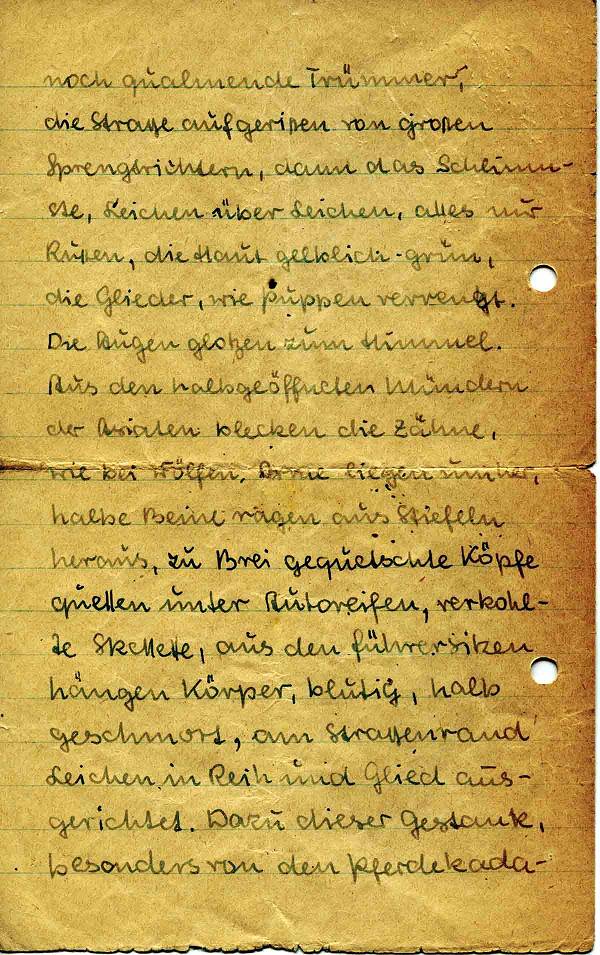 noch qualmende Trümmer,
die Straße aufgerißen von großen
Sprengtrichtern, dann das Schlimm-
ste, Leichen über Leichen, alles nur
Rußen, die Haut gelblich-grün,
die Glieder, wie Puppen verrengt.
Die Augen glotzen zum Himmel.
Aus den halbgeöffneten Mündern
der Asiaten blecken die Zähne,
wie bei Wölfen. Arme liegen umher,
halbe Beine ragen aus Stiefeln
heraus, zu Brei gequetschte Köpfe
quellen unter Autoreifen, verkohl-
te Skellette, aus den Führersitzen
hängen Körper, blutig, halb
geschmort, am Straßenrand
Leichen in Reih und Glied aus-
gerichtet. Dazu dieser Gestank,
besonders von den Pferdekada-